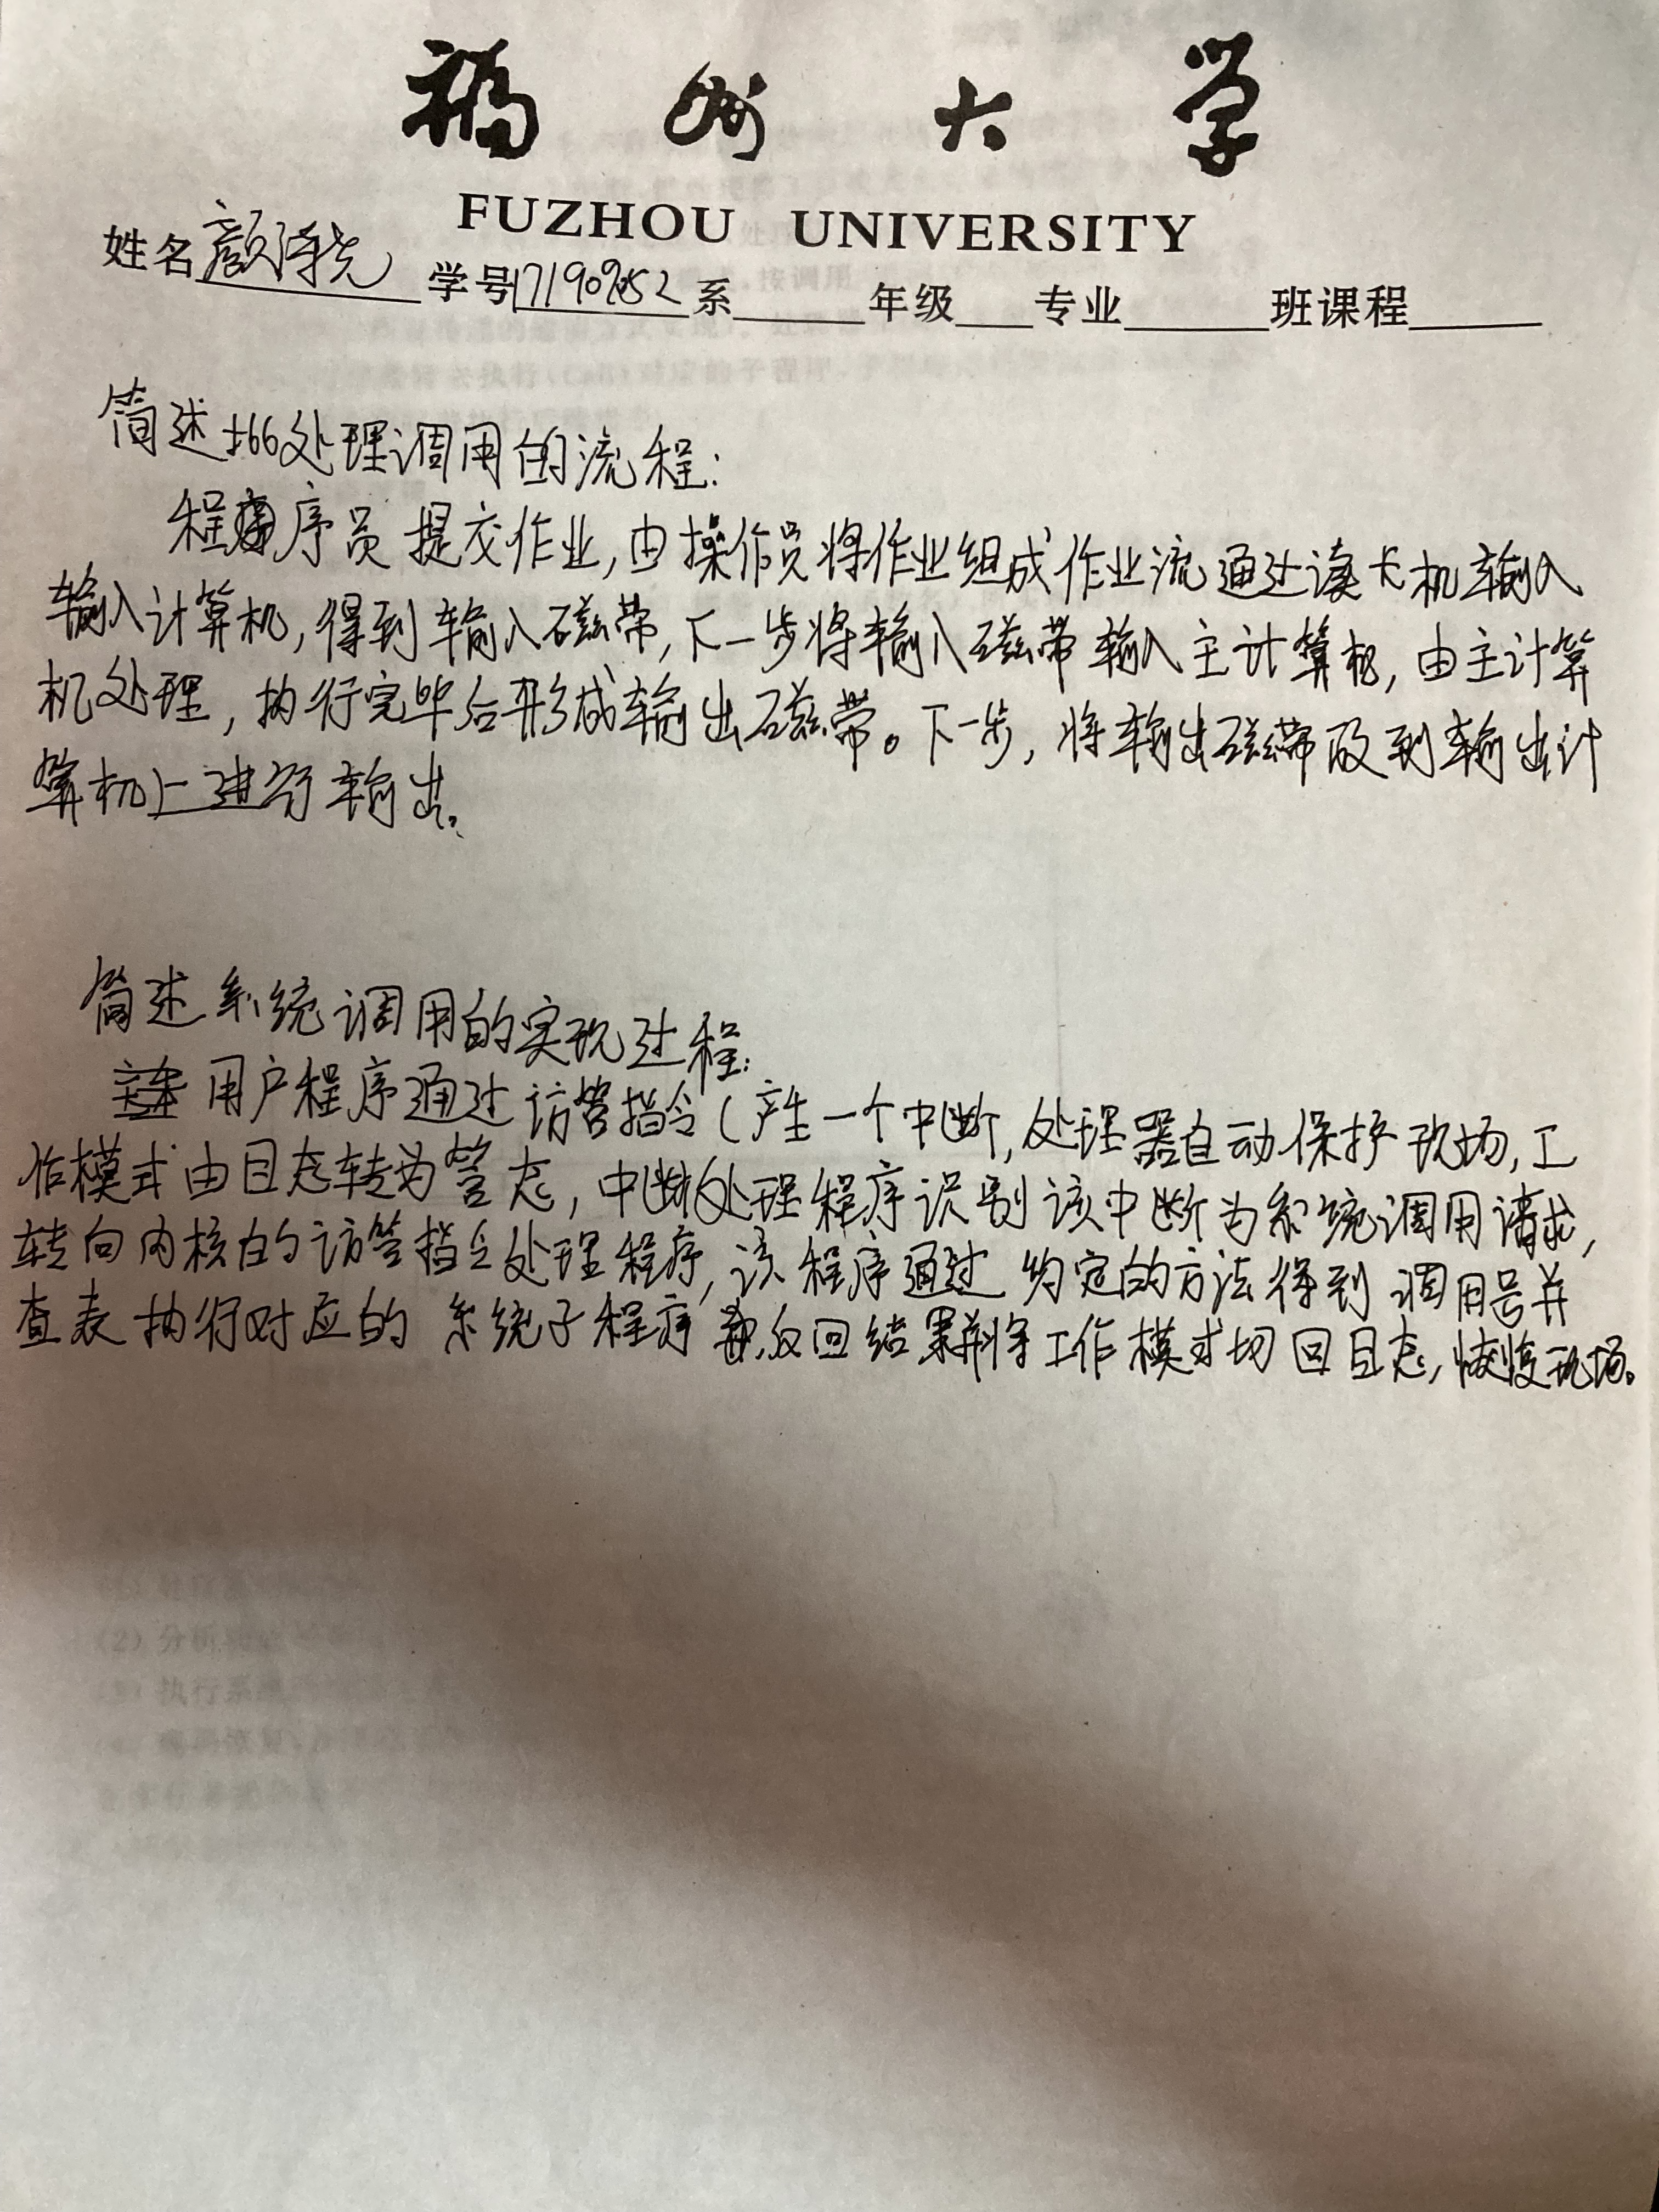 福州大学
FUZHOU UNIVERSITY
姓名 颜 学号 系 年级 专业 班课程
简述 处理调用的流程:
程序员提交作业,由操作员将作业组成作业流通过读卡机输入
输入计算机,得到输入磁带,下一步将输入磁带输入主计算机,由主计算
机处理,执行完毕后形成输出磁带。下一步,将输出磁带放到输出计
算机上进行输出。
简述系统调用的实现过程:
用户程序通过访管指令(产生一个中断,处理器自动保护现场,工
作模式由目态转为管态,中断处理程序识别该中断为系统调用请求,
转向内核的访管指令处理程序,该程序通过约定的方法得到调用号并
查表执行对应的系统子程序 返回结果并将工作模式切回目态,恢复现场。
(2)分析
执行系统